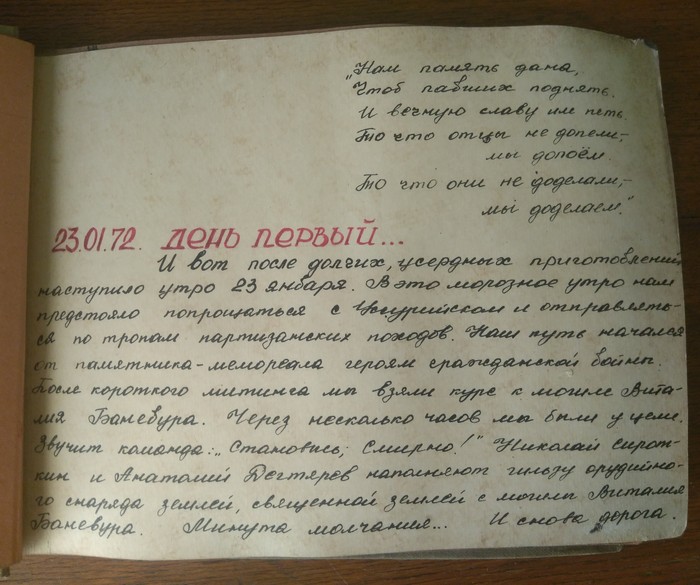 „Нам память дана,
Чтоб павших поднять.
И вечную славу им петь.
То что отцы не допели,-
мы допоём.
То что они не доделали,-
мы доделаем."
23.01.72. ДЕНЬ ПЕРВЫЙ...
И вот после долгих, усердных приготовлений
наступило утро 23 января. В это морозное утро нам
предстояло попрощаться с Уссурийском и отправлять-
ся по тропам партизанских походов. Наш путь начался
от памятника-мемореала героям гражданской войны.
После короткого митинга мы взяли курс к могиле Вита-
лия Баневура. Через несколько часов мы были у цели.
Звучит команда: „Становись; Смирно!" Николай Сирот-
кин и Анатолий Дегтярев наполняют гильзу орудийно-
го снаряда землей, священной землей с могилы Виталия
Баневура. Минута молчания... И снова дорога.